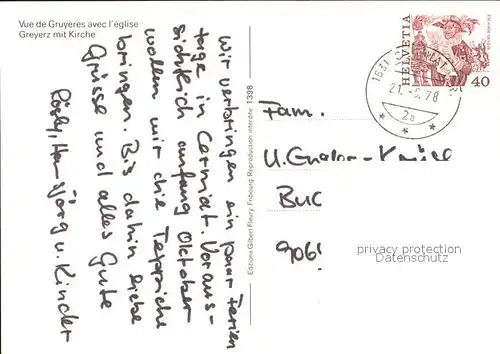 Vue de Gruyères avec l'église
Greyerz mit Kirche
Wir verbringen ein paar Ferien
tage in Cermiat. Voraus-
sichtlich anfang Oktober
wollen wir die Teppiche
bringen. Bis dahin liebe
Grüsse und alles Gute
Rösly, Hansjörg u. Kinder
Editions Gilbert Fleury Fribourg Reproduction interdite 1398
HELVETIA
40
1631
21. 78
2a
Fam.
U.
Buc
906
privacy protection
Datenschutz